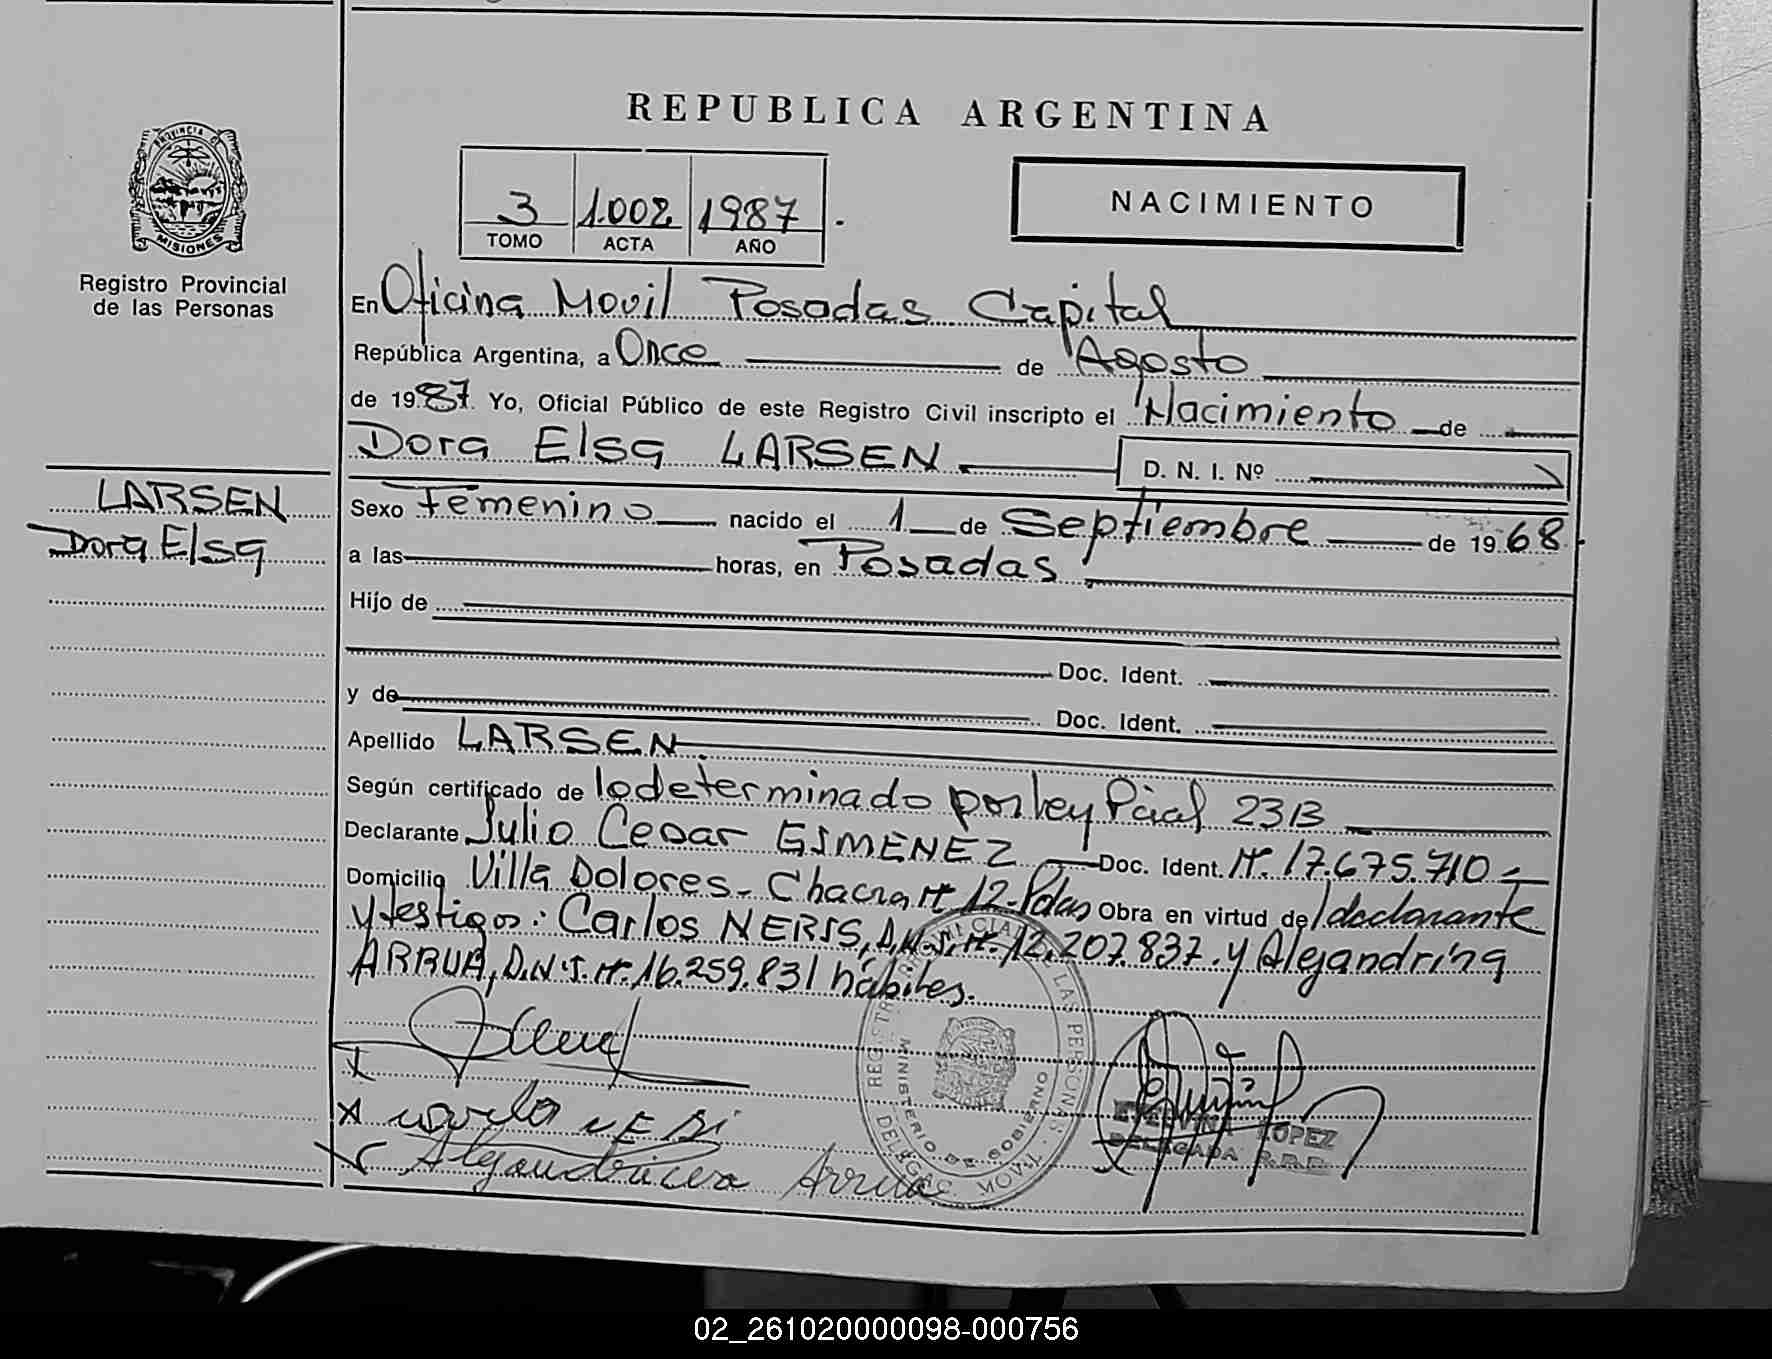 REPUBLICA ARGENTINA
PROVINCIA D
MISIONES
Registro Provincial
de las Personas
3 1.002 1987.
TOMO ACTA AÑO
NACIMIENTO
En Oficina Movil Posadas Capital
República Argentina, a Once de Agosto
de 1987. Yo, Oficial Público de este Registro Civil inscripto el Nacimiento de
Dora Elsa LARSEN D. N. I. Nº
LARSEN
Dora Elsa
Sexo Femenino nacido el 1 de Septiembre de 1968
a las horas, en Posadas
Hijo de
Doc. Ident.
y de Doc. Ident.
Apellido LARSEN
Según certificado de lo determinado por ley Pcial 2313
Declarante Julio Cesar GIMENEZ Doc. Ident. Nº. 17.675.710
Domicilio Villa Dolores - Chacra Nº 12 - Pdas Obra en virtud de declarante
y testigos: Carlos NERIS, D.N.I. Nº. 12.207.837. y Alejandrina
ARRUA, D.N.I. Nº. 16.259.831 hábiles.
REGISTRO PROVINCIAL DE LAS PERSONAS
MINISTERIO DE GOBIERNO
DELEGAC. MOVIL
x
x NERI
Alejandrina Arrua
LOPEZ
DELEGADA R.P.P.
02_261020000098-000756